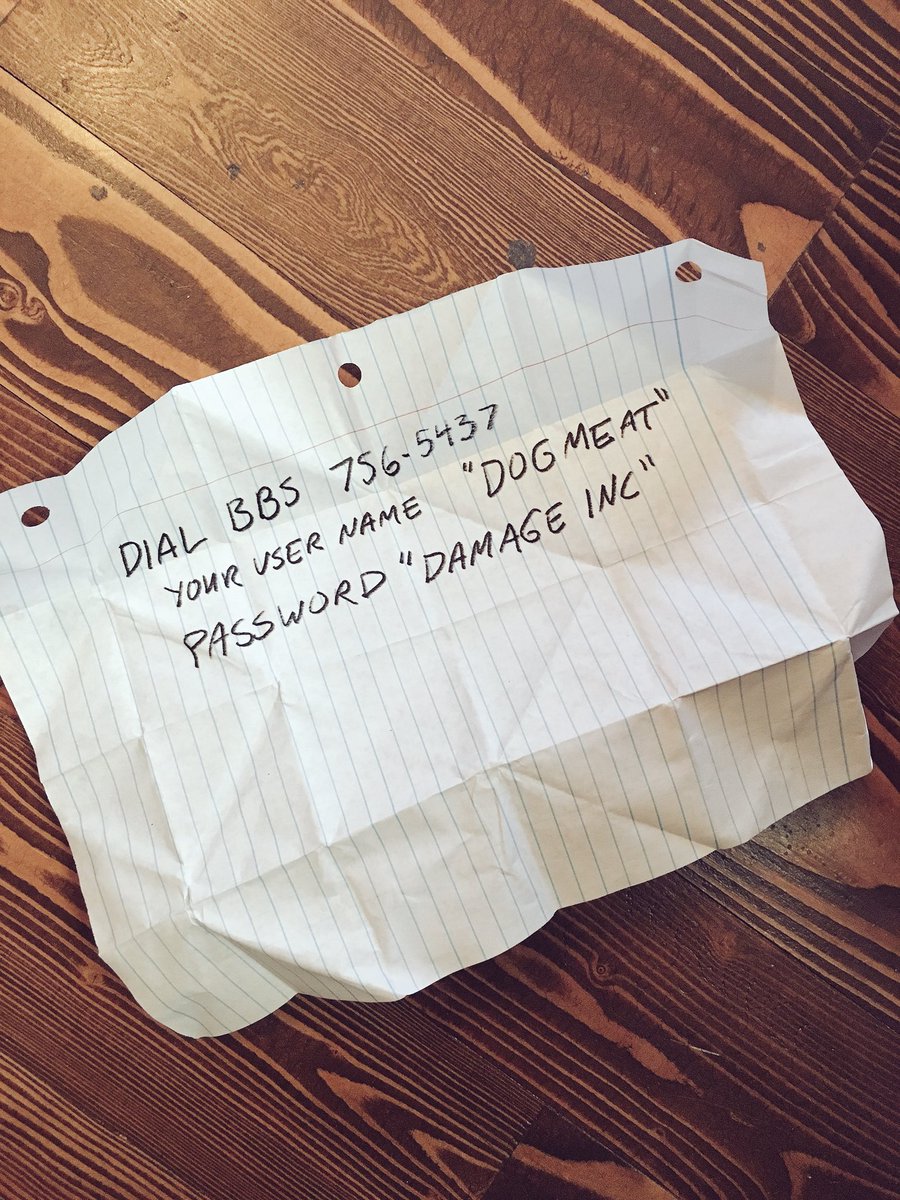 DIAL BBS 756-5437
YOUR USER NAME "DOGMEAT"
PASSWORD "DAMAGE INC"